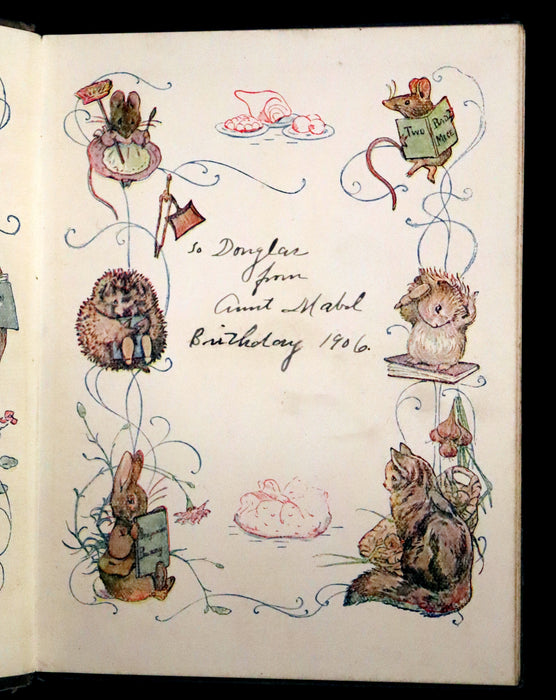 Two Bad
Mice
to Douglas
from
Aunt Mabel
Birthday 1906.
Benjamin
Bunny